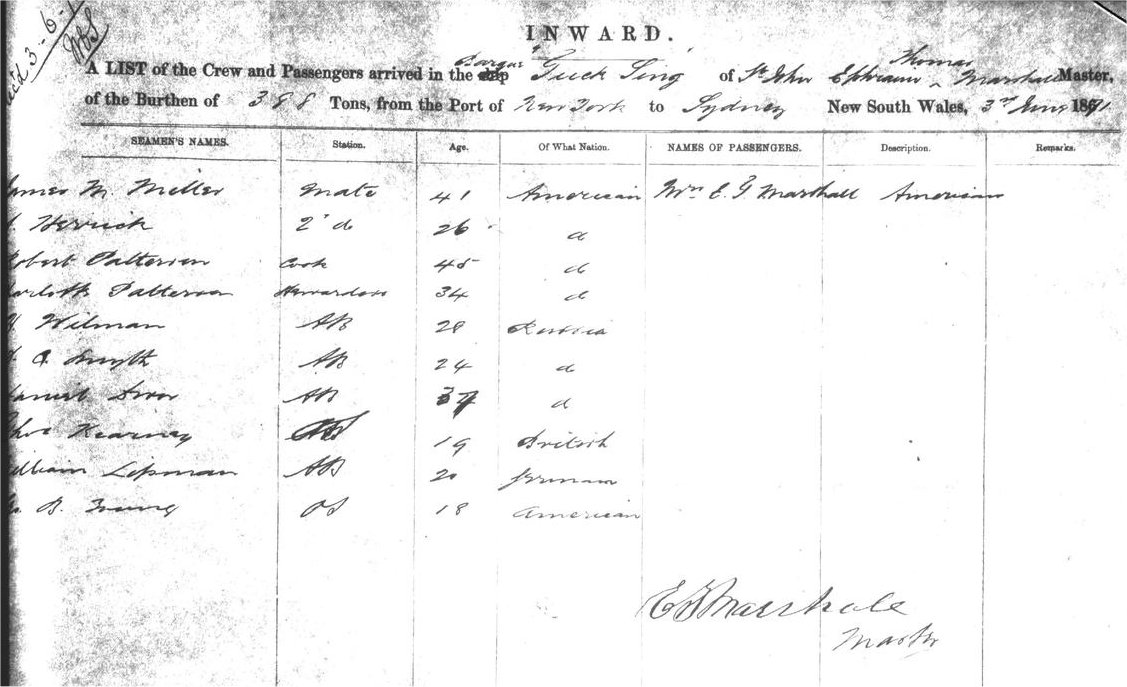 3-6-
INWARD.
Barque Thomas
A LIST of the Crew and Passengers arrived in the ship Tuck Sing of St John Ephraim Marshall Master,
of the Burthen of 398 Tons, from the Port of New York to Sydney New South Wales, 3rd June 1871
SEAMEN'S NAMES. Station. Age. Of What Nation. NAMES OF PASSENGERS. Description. Remarks.
James M. Miller Mate 41 American Mrs E. T. Marshall American
Herrick 2d do 26 d
Robert Patterson Cook 45 d
Patterson Stewardess 34 d
Wilman AB 28 Russia
Smyth AB 24 d
Daniel AB 37 d
Kearney 19 British
William Lipman AB 20 German
B. Young OS 18 American
E T Marshall
Master